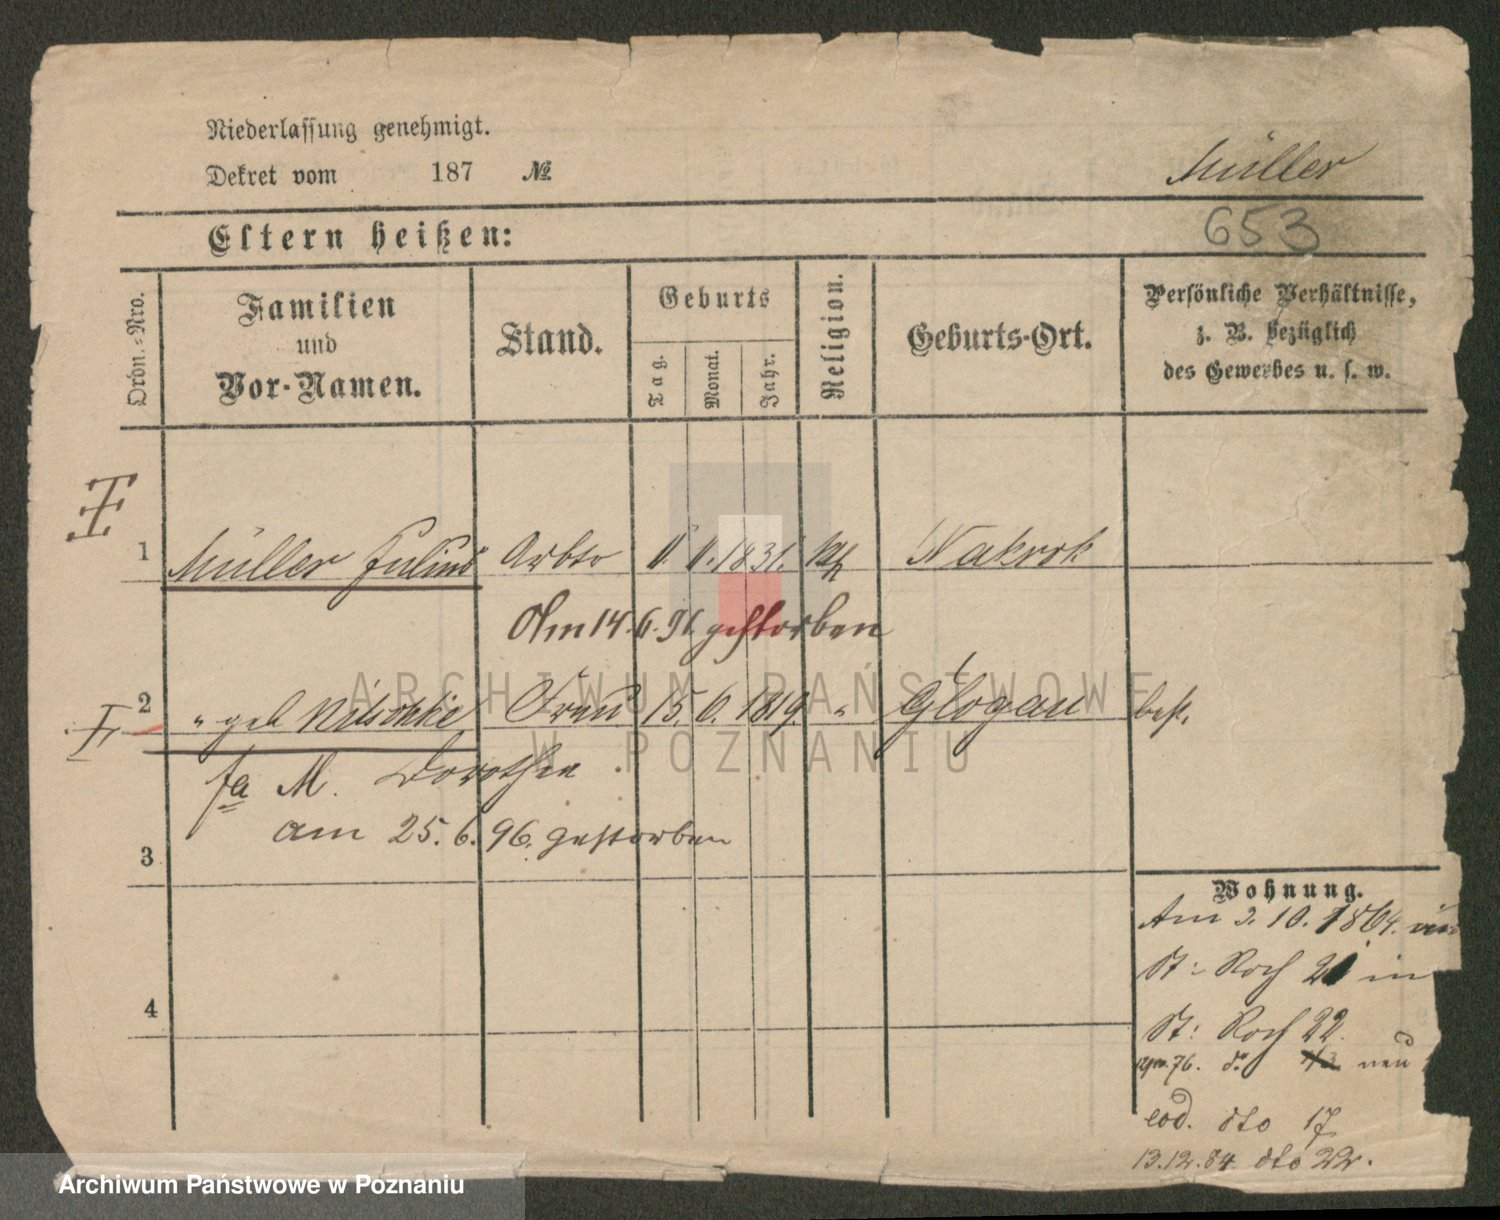 Niederlassung genehmigt.
Dekret vom 187 №
Müller
653
Eltern heißen:
Ordn.-Nro.
Familien und Vor-Namen.
Stand.
Geburts
Tag.
Monat.
Jahr.
Religion.
Geburts-Ort.
Persönliche Verhältnisse,
z. B. bezüglich
des Gewerbes u. s. w.
1 Müller Julius Arbtr 1831. kth
Am 14. 6. 91. gestorben
2 " geb Nitschke Frau 15. 6. 1819 " Glogau
M. Dorothea
am 25. 6. 96. gestorben
3
4
Wohnung.
Am 3. 10. 1864.
St: Roch 21 in
St: Roch 22.
76. do neu
eod. dto 17
13.12.84 dto 22.
ARCHIWUM PAŃSTWOWE
W POZNANIU
Archiwum Państwowe w Poznaniu